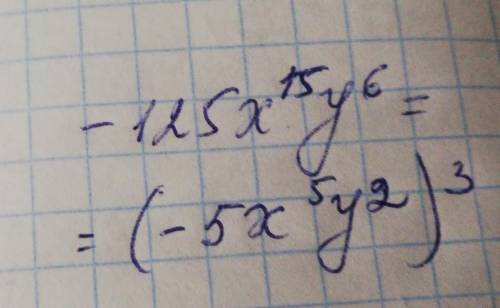 -125x¹⁵y⁶=
=(-5x⁵y2)³